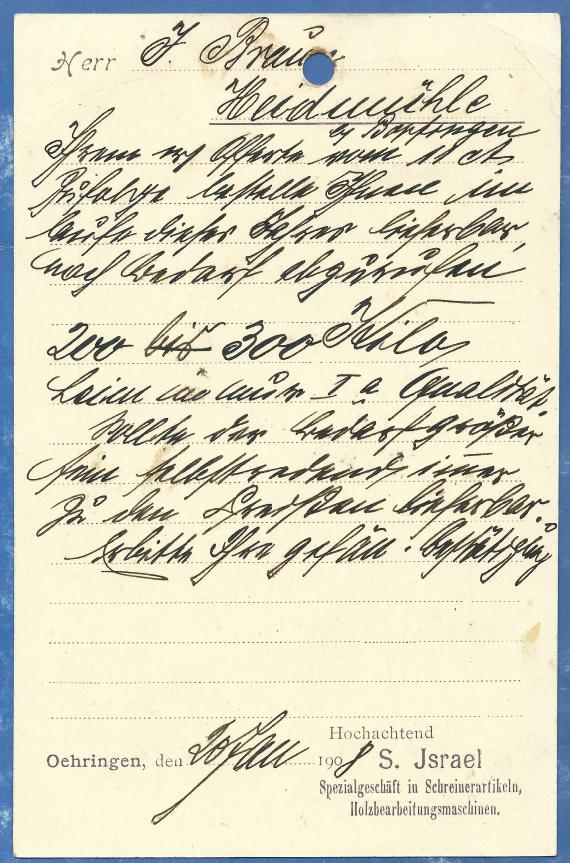 Herr J. Braun
Heidmühle
Ihrer w Offerte vom 11 cts
Zufolge bestelle Ihnen im
Laufe dieses Jahres lieferbar,
nach Bedarf abzurufen
200 bis 300 Kilo
Leim in nur Ia Qualität.
Sollte der Bedarf größer
sein selbstredend immer
zu den Preisen lieferbar.
Erbitte Ihre gefäll. Bestätigung
Hochachtend
Oehringen, den 20 Jan 1908 S. Jsrael
Spezialgeschäft in Schreinerartikeln,
Holzbearbeitungsmaschinen.